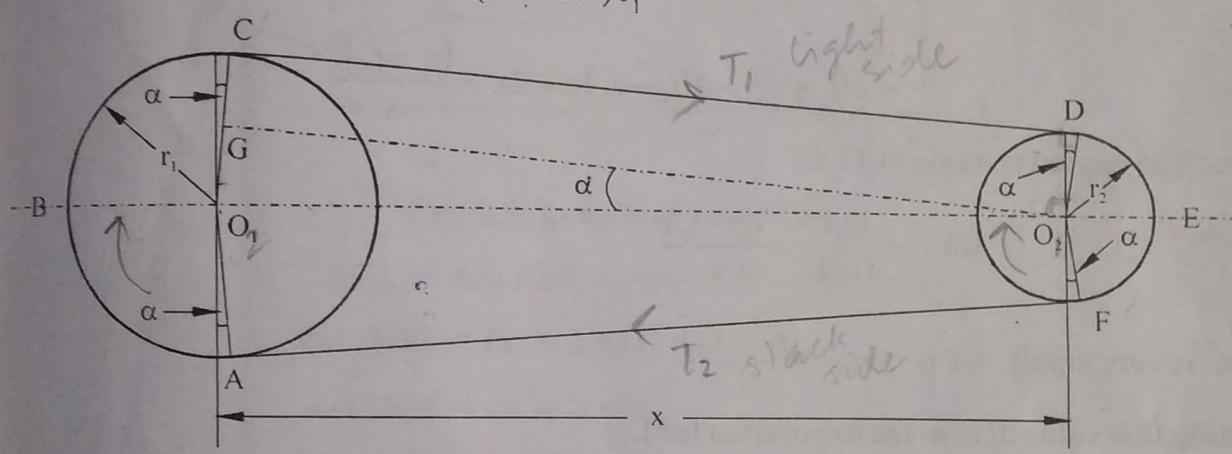 C
T₁ tight side
α
D
G
r₁
α
α
r₂
B
O₁
O₂
E
α
α
A
T₂ slack side
F
x